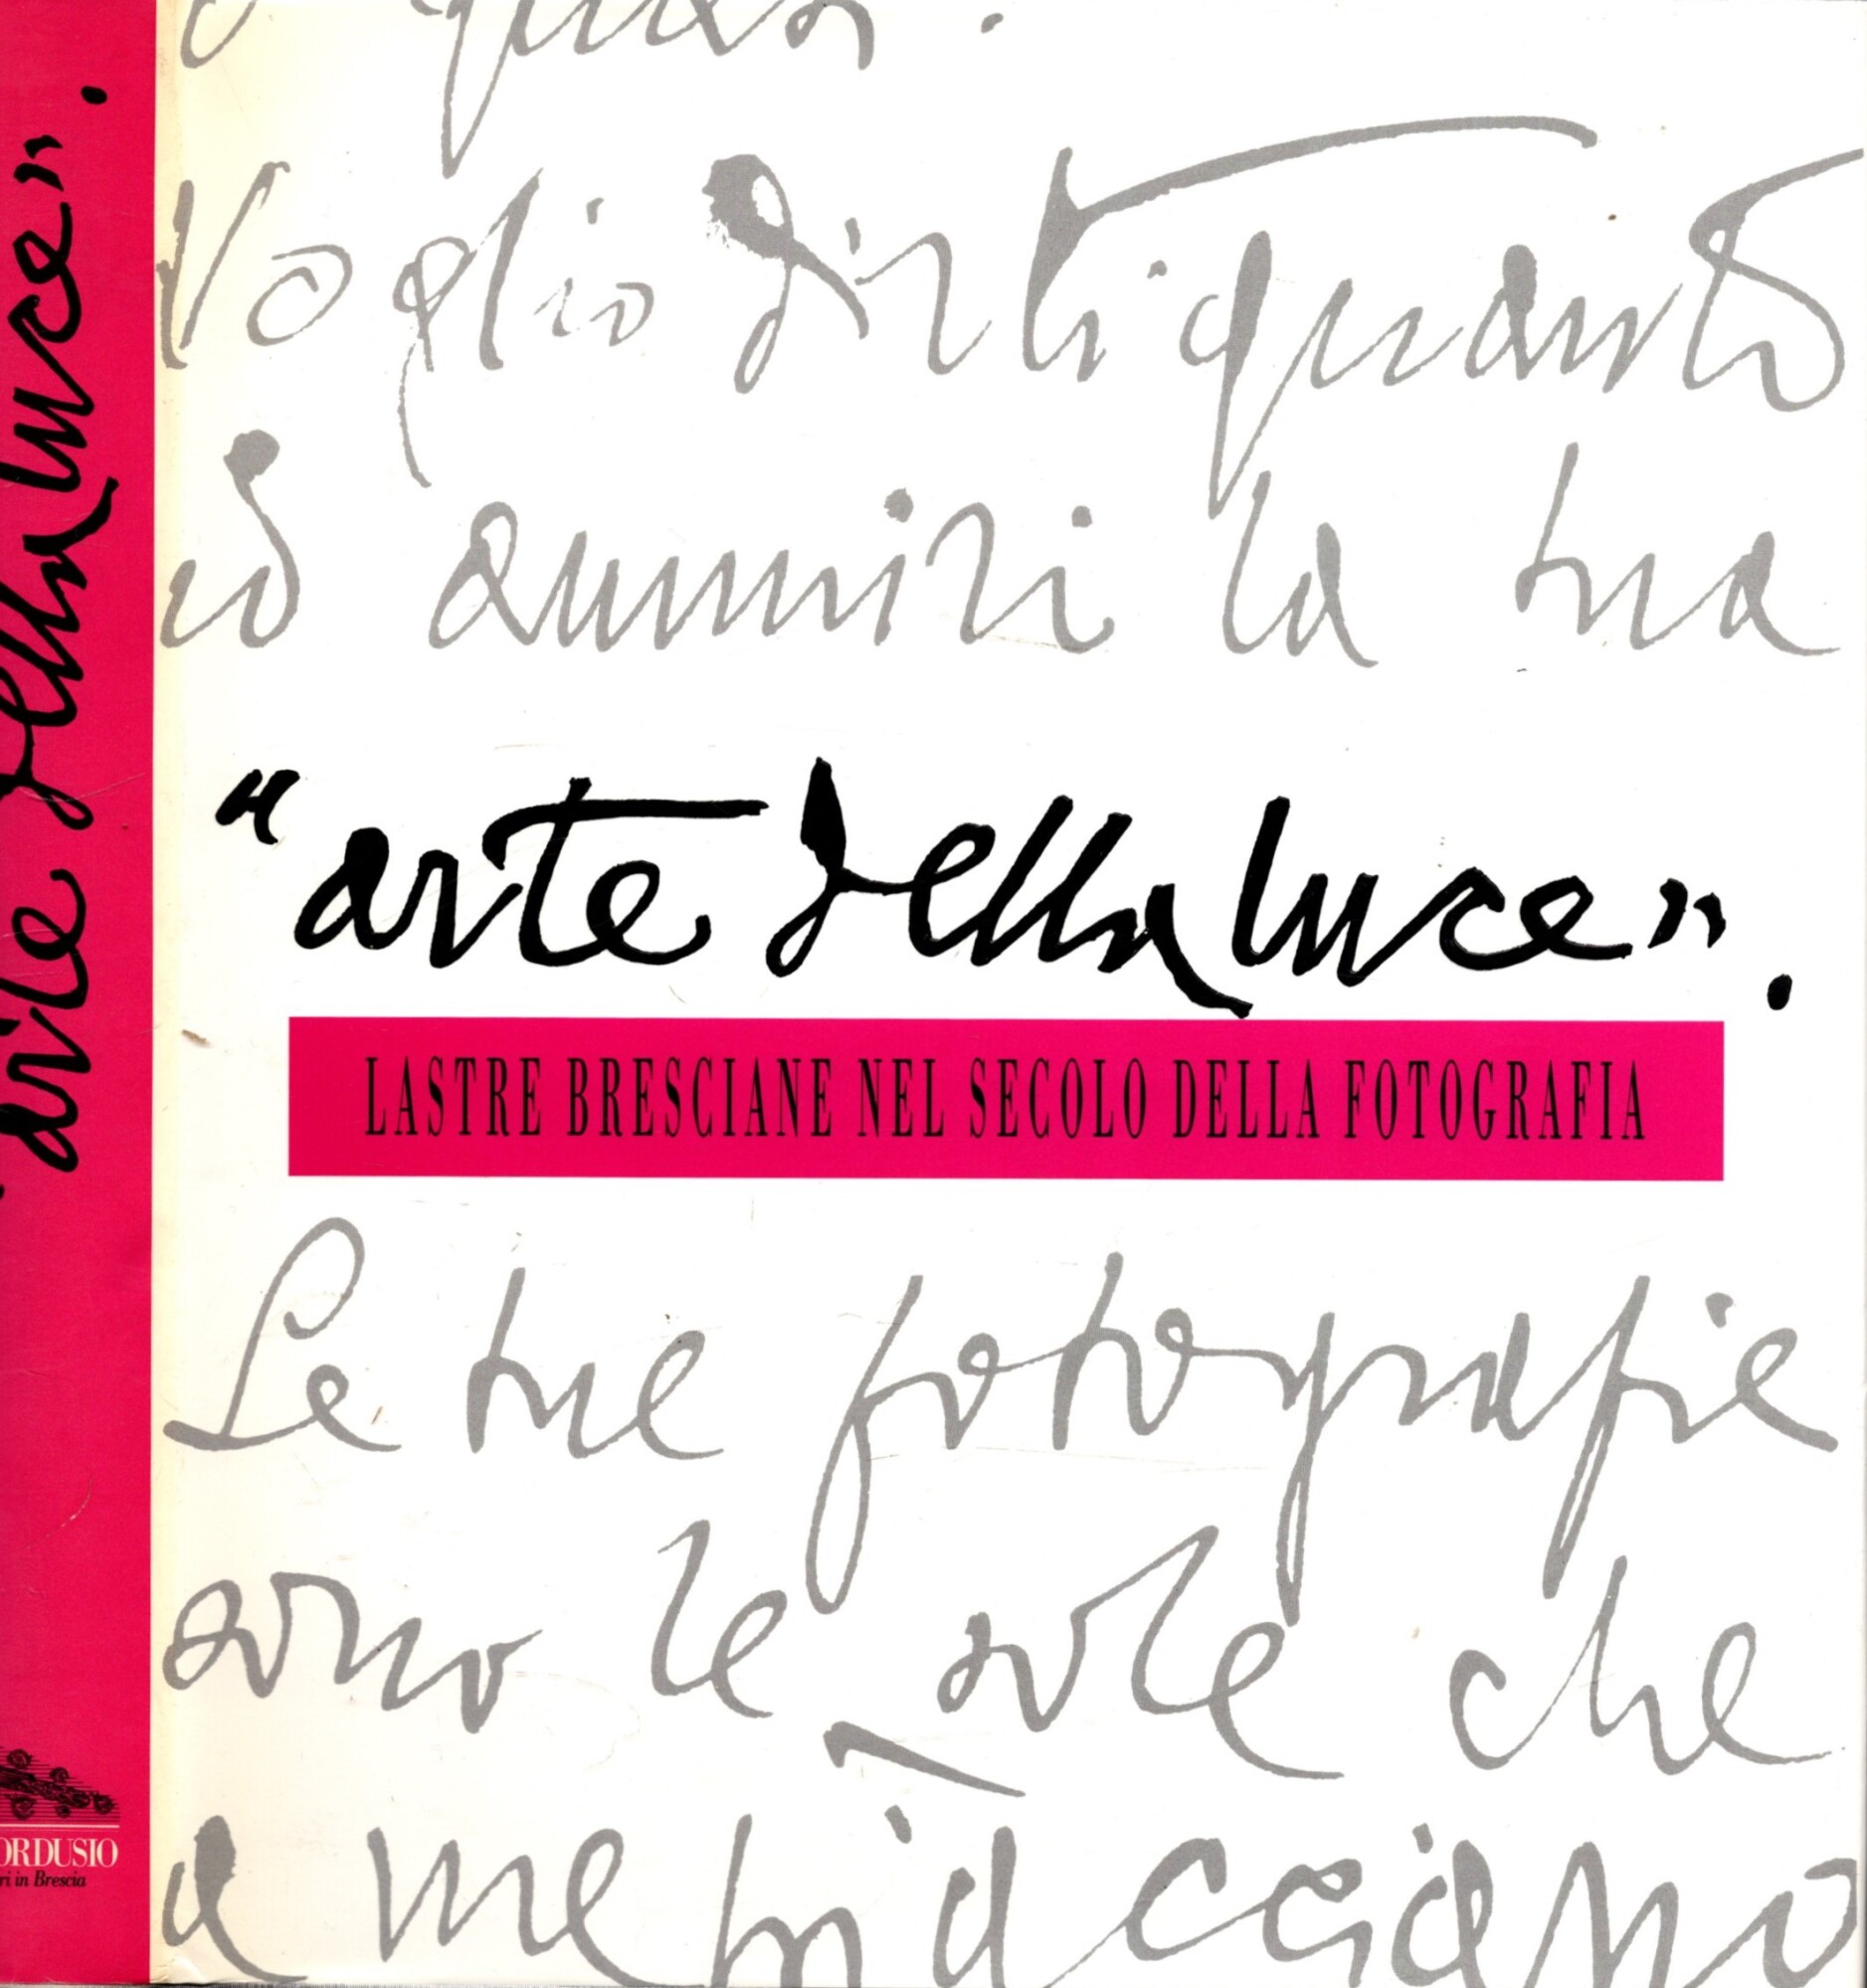 o quasi.
Voglio dirti quanto
io ammiri la tua
“arte della luce”.
LASTRE BRESCIANE NEL SECOLO DELLA FOTOGRAFIA
Le tue fotografie
sono le sole che
a me piacciano
“arte della luce”.
ORDUSIO
ri in Brescia